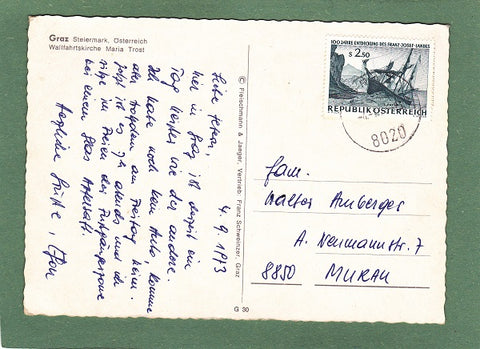 Graz Steiermark, Österreich
Wallfahrtskirche Maria Trost
4. 9. 1973
Liebe
hier in Graz ist derzeit ein
Tag heißer wie der andere.
Ich habe noch kein Auto komme
aber trotzdem am Freitag heim.
Jetzt ist es 7h abends und ich
sitze im Freien der Fußgängerzone
bei einem Glas Apfelsaft.
Herzliche Grüße,
© Fleischmann & Jaeger, Vertrieb: Franz Schweinzer, Graz
G 30
100 JAHRE ENTDECKUNG DES FRANZ-JOSEF-LANDES
S 2.50
REPUBLIK ÖSTERREICH
8020
Fam.
Walter Amberger
A. Neumannstr. 7
8850 MURAU